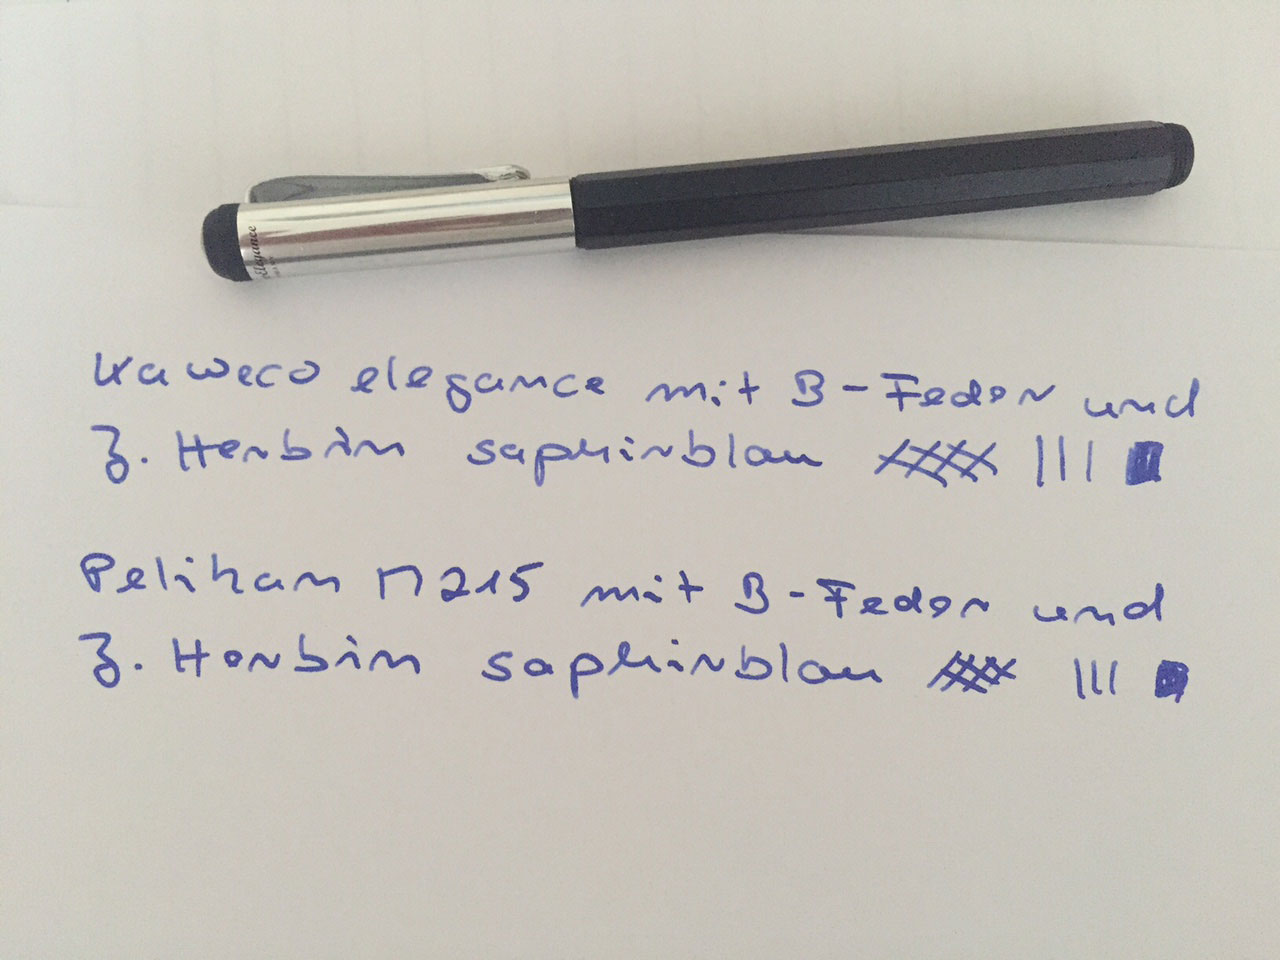 Elegance
Kaweco elegance mit B-Feder und
J. Herbin saphirblau
Pelikan M215 mit B-Feder und
J. Herbin saphirblau